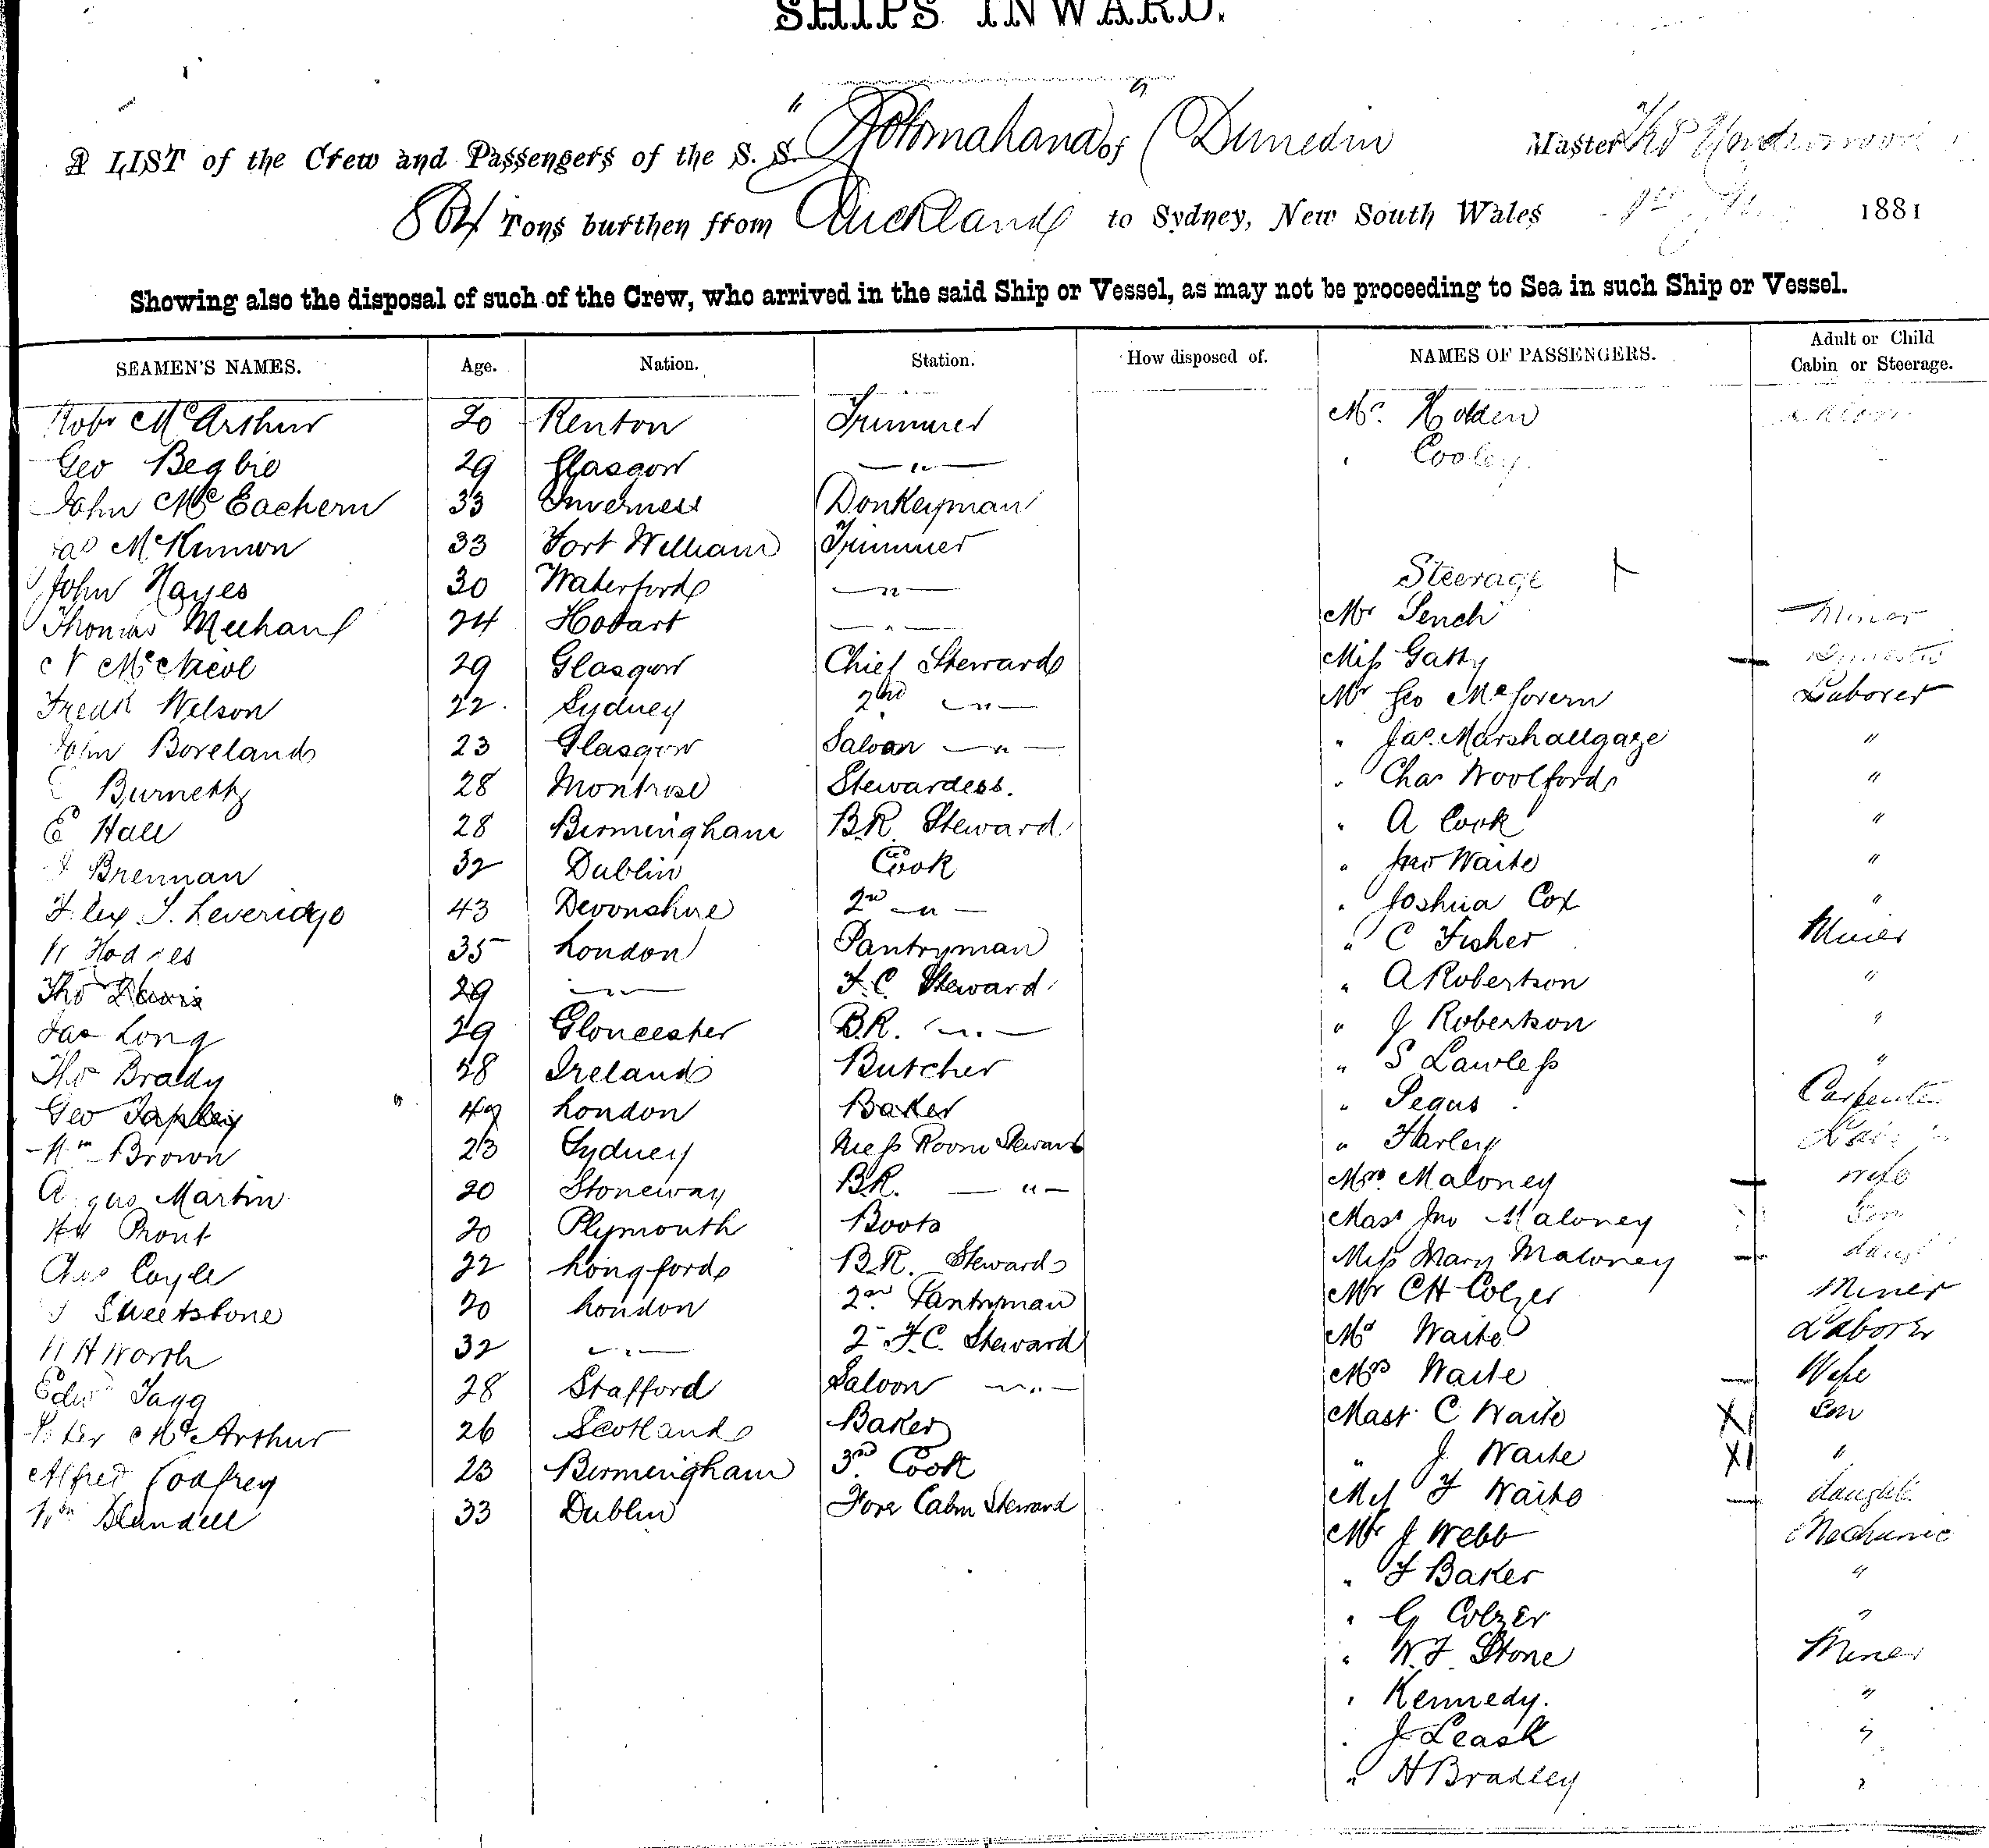 SHIPS INWARD.
A LIST of the Crew and Passengers of the S. S. "Rotomahana" of Dunedin Master Thos Underwood
864 Tons burthen from Auckland to Sydney, New South Wales 1881
Showing also the disposal of such of the Crew, who arrived in the said Ship or Vessel, as may not be proceeding to Sea in such Ship or Vessel.
SEAMEN'S NAMES. Age. Nation. Station. How disposed of. NAMES OF PASSENGERS. Adult or Child Cabin or Steerage.
Robt McArthur 20 Renton Trimmer Mr. Holden
Geo Begbie 29 Glasgow " " Cooley
John McEachern 33 Inverness Donkeyman
Jas McKinnon 33 Fort William Trimmer
Steerage
John Hayes 30 Waterford "
Thomas Meehan 24 Hobart " Mr Miner
McNicol 29 Glasgow Chief Steward Miss Gatty Domestic
Fredk Wilson 22 Sydney 2nd " Mr Geo McGovern Laborer
John Boreland 23 Glasgow Saloon " " Jas. Marshallgaze "
Burnett 28 Montrose Stewardess. " Chas Woolford "
E Hall 28 Birmingham B.R. Steward " A Cook "
Brennan 32 Dublin Cook " Jno Waite "
S. Leveridge 43 Devonshire 2nd " " Joshua Cox "
W Hodges 35 London Pantryman " C Fisher Miner
Thos Davis 29 " F.C. Steward " A Robertson "
Jas Long 29 Gloucester B.R. " " J Robertson "
Thos Brady 28 Ireland Butcher " S Lawless "
Geo Tapley 49 London Baker " Pegus Carpenter
Wm Brown 23 Sydney Mess Room Steward " Farley
Angus Martin 20 Stoneway B.R. " Mrs. Maloney wife
Prout 20 Plymouth Boots Mast Jno Maloney Son
Chas Coyle 22 Longford B.R. Steward Miss Mary Maloney daught
Sweetstone 20 London 2nd Pantryman Mr CH Colzer Miner
W H Worth 32 " 2 F.C. Steward Mr Waite Laborer
Edwd Tagg 28 Stafford Saloon " Mrs Waite Wife
Peter McArthur 26 Scotland Baker Mast C Waite X Son
Alfred Godfrey 23 Birmingham 3rd Cook " J Waite X "
Wm Blundell 33 Dublin Fore Cabin Steward Miss F Waite daught
Mr J Webb Mechanic
" F Baker "
" G Colzer "
" W.F. Stone Miner
" Kennedy. "
" J Leask "
" H Bradley "